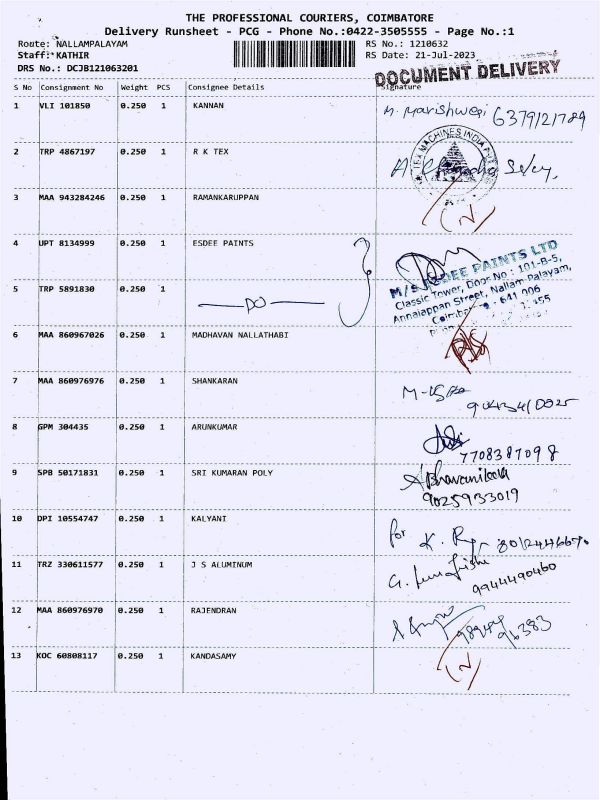 THE PROFESSIONAL COURIERS, COIMBATORE
Delivery Runsheet - PCG - Phone No.:0422-3505555 - Page No.:1
Route: NALLAMPALAYAM RS No.: 1210632
Staff: KATHIR RS Date: 21-Jul-2023
DRS No.: DCJB121063201 DOCUMENT DELIVERY
S No Consignment No Weight PCS Consignee Details Signature
1 VLI 101850 0.250 1 KANNAN 6379121789
2 TRP 4867197 0.250 1 R K TEX
3 MAA 943284246 0.250 1 RAMANKARUPPAN (N)
4 UPT 8134999 0.250 1 ESDEE PAINTS M/S. ESDEE PAINTS LTD
Classic Tower, Door No : 101-B-5,
5 TRP 5891830 0.250 1 DO Annaiappan Street, Nallam Palayam,
641 006
6 MAA 860967026 0.250 1 MADHAVAN NALLATHABI
7 MAA 860976976 0.250 1 SHANKARAN
8 GPM 304435 0.250 1 ARUNKUMAR
7708387098
9 SPB 50171831 0.250 1 SRI KUMARAN POLY
9025933019
10 DPI 10554747 0.250 1 KALYANI for K.
11 TRZ 330611577 0.250 1 J S ALUMINUM
9944490460
12 MAA 860976970 0.250 1 RAJENDRAN
13 KOC 60808117 0.250 1 KANDASAMY (N)